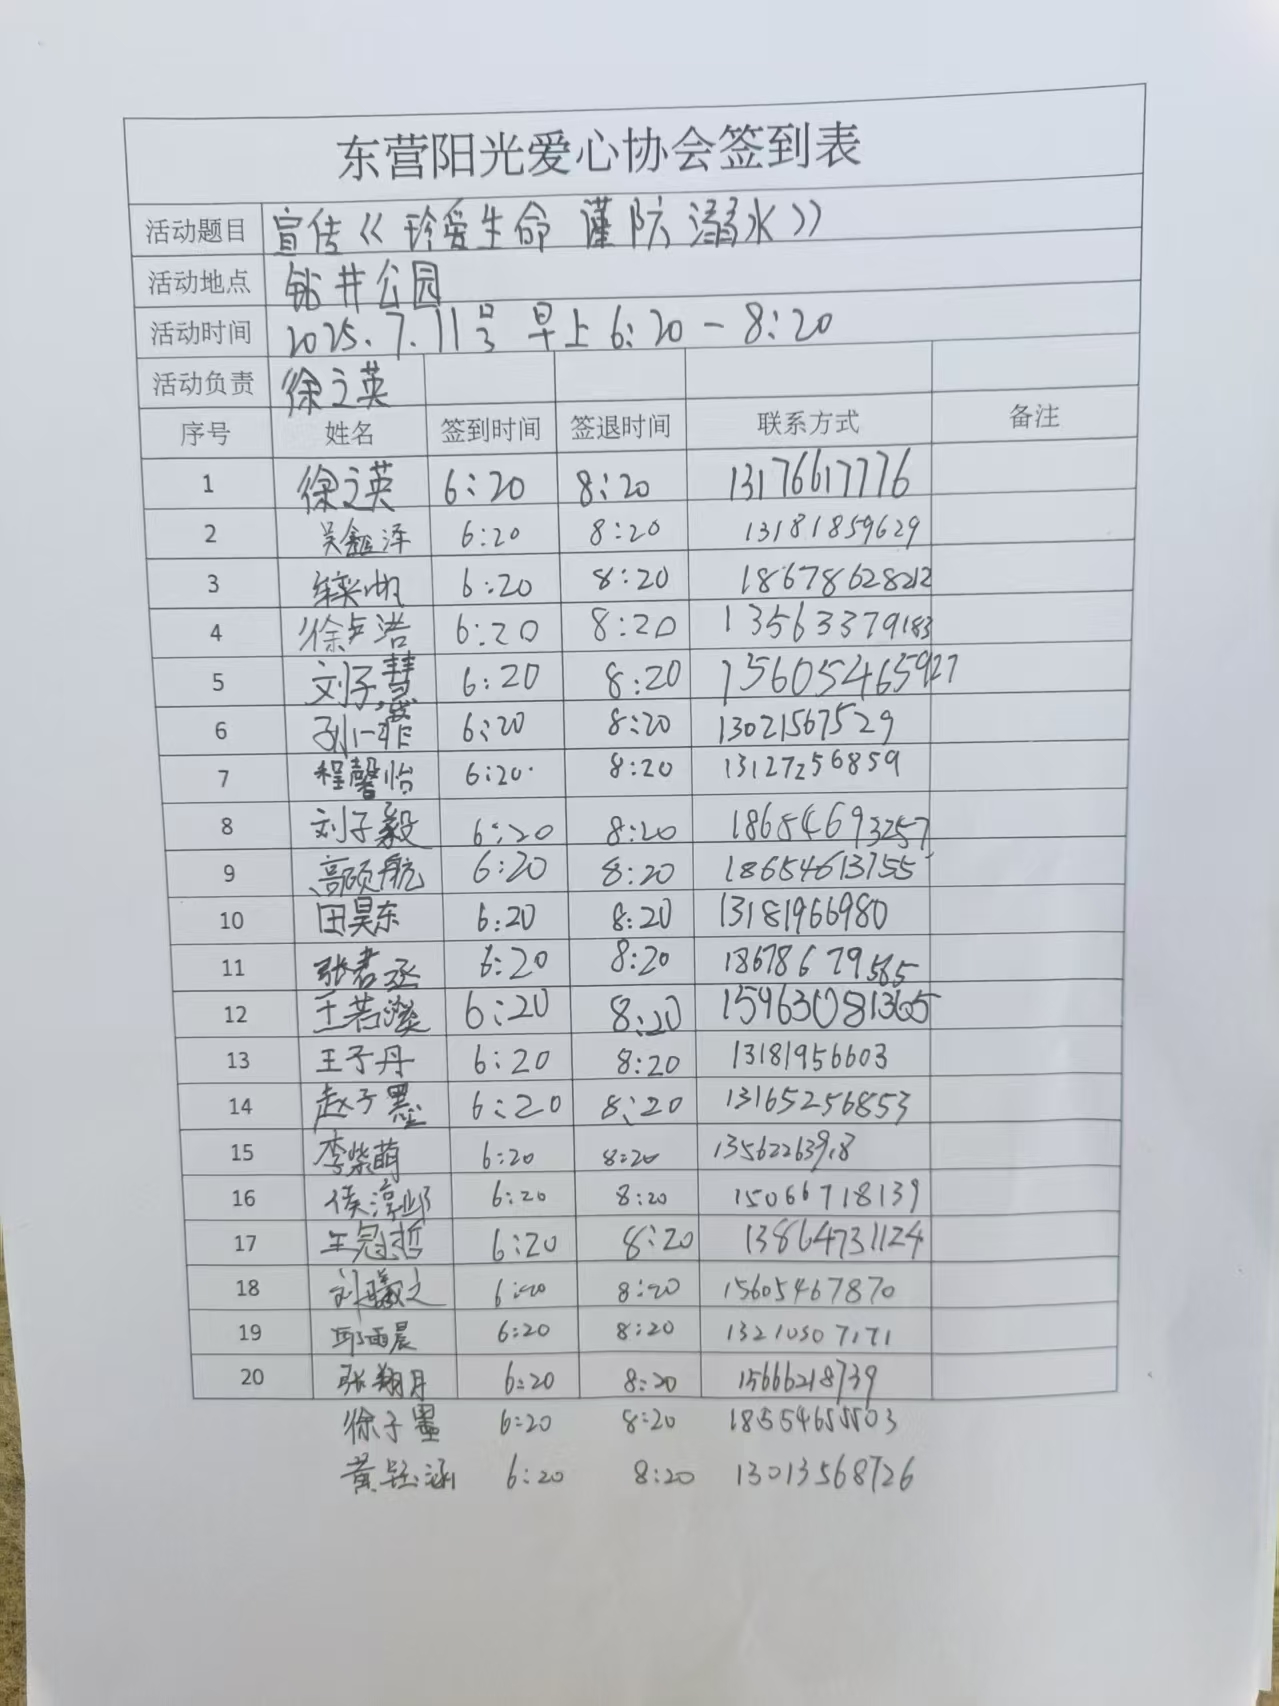 东营阳光爱心协会签到表
活动题目 宣传《珍爱生命 谨防溺水》
活动地点 钻井公园
活动时间 2025.7.11号 早上6:20-8:20
活动负责 徐立英
序号 姓名 签到时间 签退时间 联系方式 备注
1 徐立英 6:20 8:20 13176617776
2 吴鑫泽 6:20 8:20 13181859629
3 6:20 8:20 18678628212
4 徐卢浩 6:20 8:20 13563379183
5 刘子慧 6:20 8:20 15605465927
6 孙一菲 6:20 8:20 13021567529
7 程馨怡 6:20 8:20 13127256859
8 刘子毅 6:20 8:20 18654693257
9 高硕航 6:20 8:20 18654613755
10 田昊东 6:20 8:20 13181966980
11 张君丞 6:20 8:20 18678679565
12 王若溪 6:20 8:20 15963081365
13 王子丹 6:20 8:20 13181956603
14 赵子墨 6:20 8:20 13165256853
15 李紫萌 6:20 8:20
16 侯淳邺 6:20 8:20 15066718139
17 王冠哲 6:20 8:20 13864731124
18 刘曦之 6:20 8:20 15605467870
19 邱雨晨 6:20 8:20 13210507171
20 张翔月 6:20 8:20 15666218739
徐子墨 6:20 8:20 18554655503
黄钰涵 6:20 8:20 13013568726